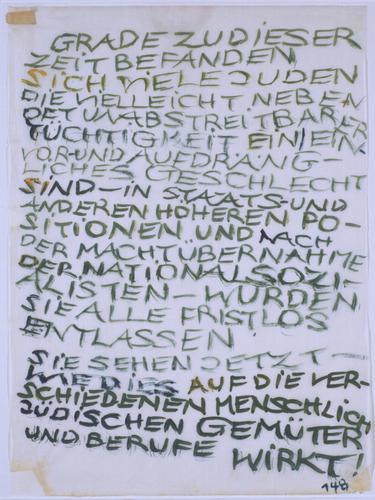 GRADE ZU DIESER
ZEIT BEFANDEN
SICH VIELE JUDEN
DIE VIELLEICHT NEBEN
DER UNABSTREITBARER
TÜCHTIGKEIT EIN EIN
VOR-UND AUFDRÄNG-
LICHES GESCHLECHT
SIND-IN STAATS-UND
ANDEREN HÖHEREN PO-
SITIONEN UND NACH
DER MACHTÜBERNAHME
DER NATIONALSOZI-
ALISTEN-WURDEN
SIE ALLE FRISTLOS
ENTLASSEN!
SIE SEHEN JETZT-
WIE DIES AUF DIE VER-
SCHIEDENEN MENSCHLICH
JÜDISCHEN GEMÜTER
UND BERUFE WIRKT!
148